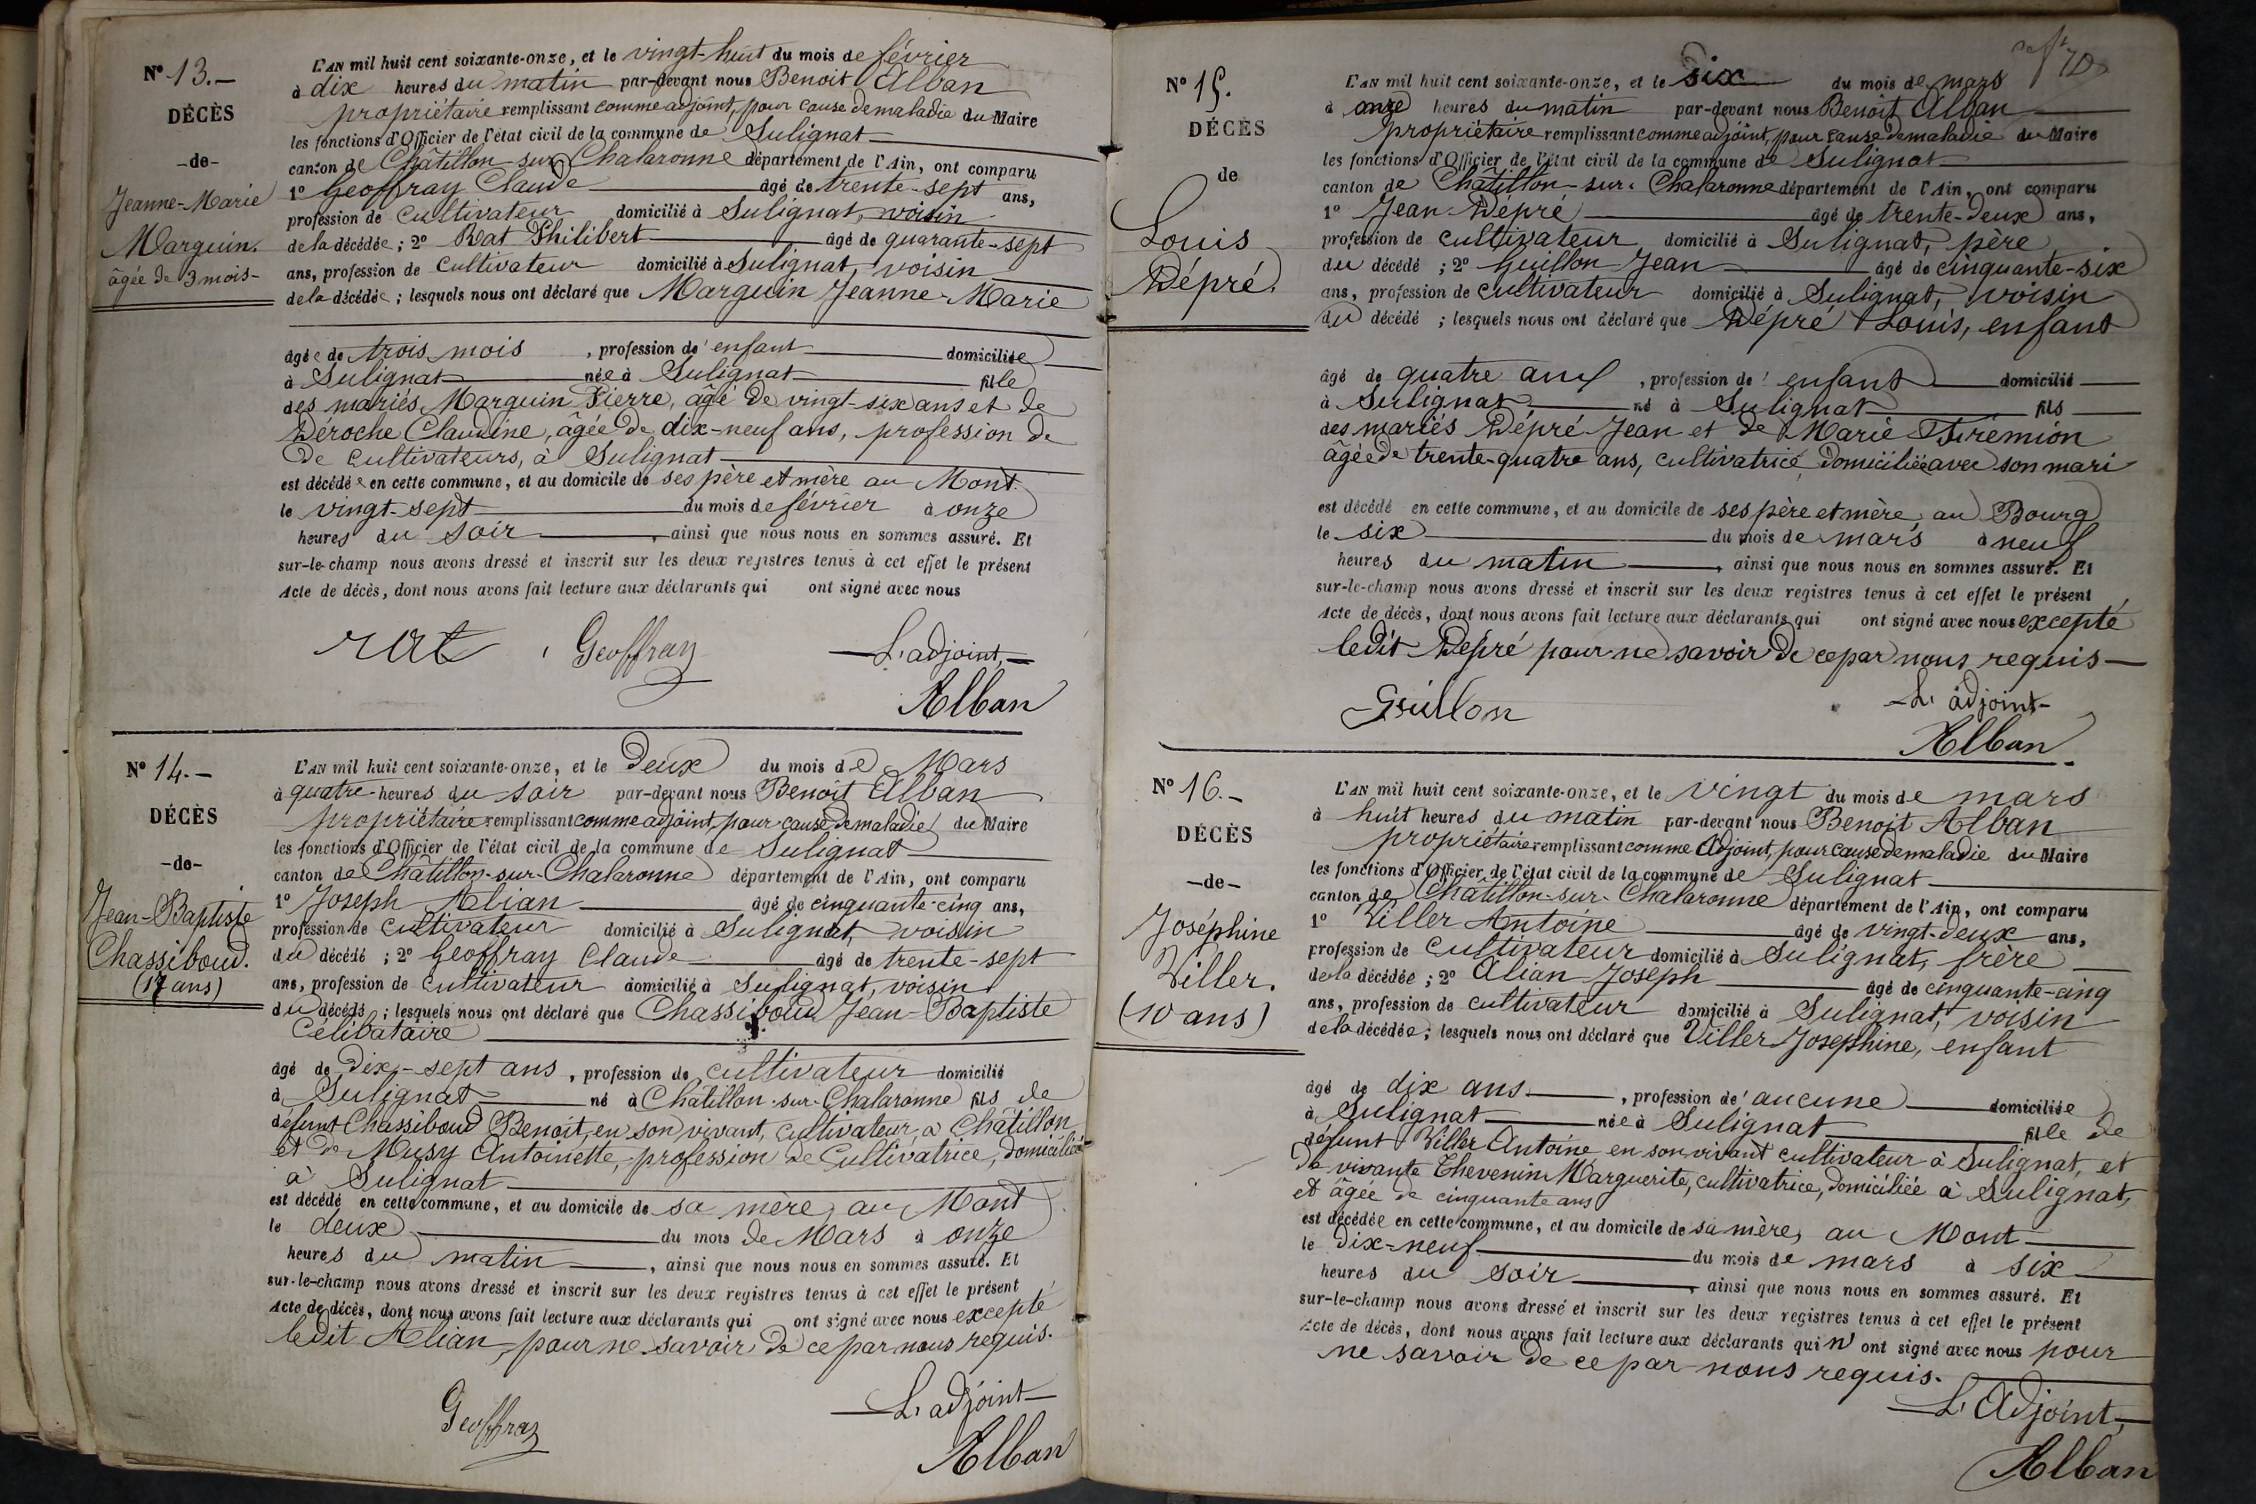 N° 13.—
DÉCÈS
—de—
Jeanne-Marie
Marguin.
âgée de 3 mois—
L'AN mil huit cent soixante-onze, et le vingt-huit du mois de février
à dix heures du matin par-devant nous Benoit Alban
propriétaire remplissant comme adjoint, pour cause de maladie du Maire
les fonctions d'Officier de l'état civil de la commune de Sulignat
canton de Châtillon-sur-Chalaronne département de l'Ain, ont comparu
1° Geoffray Claude âgé de trente-sept ans,
profession de cultivateur domicilié à Sulignat, voisin
de la décédée ; 2° Rat Philibert âgé de quarante-sept
ans, profession de cultivateur domicilié à Sulignat, voisin
de la décédée ; lesquels nous ont déclaré que Marguin Jeanne-Marie
âgée de trois mois , profession de enfant domiciliée
à Sulignat née à Sulignat fille
des mariés Marguin Pierre, âgé de vingt-six ans et de
Déroche Claudine, âgée de dix-neuf ans, profession de
de cultivateurs, à Sulignat
est décédée en cette commune, et au domicile de ses père et mère au Mont
le vingt-sept du mois de février à onze
heures du soir , ainsi que nous nous en sommes assuré. Et
sur-le-champ nous avons dressé et inscrit sur les deux registres tenus à cet effet le présent
Acte de décès, dont nous avons fait lecture aux déclarants qui ont signé avec nous
rat Geoffray L'adjoint,
Alban
N° 14.—
DÉCÈS
—de—
Jean-Baptiste
Chassiboud.
(17 ans)
L'AN mil huit cent soixante-onze, et le deux du mois de Mars
à quatre heures du soir par-devant nous Benoit Alban
propriétaire remplissant comme adjoint, pour cause de maladie du Maire
les fonctions d'Officier de l'état civil de la commune de Sulignat
canton de Châtillon-sur-Chalaronne département de l'Ain, ont comparu
1° Joseph Alian âgé de cinquante-cinq ans,
profession de cultivateur domicilié à Sulignat, voisin
du décédé ; 2° Geoffray Claude âgé de trente-sept
ans, profession de cultivateur domicilié à Sulignat, voisin
du décédé ; lesquels nous ont déclaré que Chassiboud Jean-Baptiste
célibataire
âgé de dix-sept ans , profession de cultivateur domicilié
à Sulignat né à Châtillon-sur-Chalaronne fils de
défunt Chassiboud Benoit, en son vivant, cultivateur, à Châtillon
et de Musy Antoinette, profession de cultivatrice, domiciliée
à Sulignat
est décédé en cette commune, et au domicile de sa mère, au Mont
le deux du mois de Mars à onze
heures du matin , ainsi que nous nous en sommes assuré. Et
sur-le-champ nous avons dressé et inscrit sur les deux registres tenus à cet effet le présent
Acte de décès, dont nous avons fait lecture aux déclarants qui ont signé avec nous excepté
ledit Alian, pour ne savoir de ce par nous requis.
Geoffray L'adjoint
Alban
70
N° 15.
DÉCÈS
de
Louis
Dépré.
L'AN mil huit cent soixante-onze, et le six du mois de mars
à onze heures du matin par-devant nous Benoit Alban
propriétaire remplissant comme adjoint, pour cause de maladie du Maire
les fonctions d'Officier de l'état civil de la commune de Sulignat
canton de Châtillon-sur-Chalaronne département de l'Ain, ont comparu
1° Jean Dépré âgé de trente-deux ans,
profession de cultivateur domicilié à Sulignat, père
du décédé ; 2° Guillon Jean âgé de cinquante-six
ans, profession de cultivateur domicilié à Sulignat, voisin
du décédé ; lesquels nous ont déclaré que Dépré Louis, enfant
âgé de quatre ans , profession de enfant domicilié
à Sulignat né à Sulignat fils
des mariés Dépré Jean et de Marie
âgée de trente-quatre ans, cultivatrice, domiciliée avec son mari
est décédé en cette commune, et au domicile de ses père et mère, au Bourg
le six du mois de mars à neuf
heures du matin , ainsi que nous nous en sommes assuré. Et
sur-le-champ nous avons dressé et inscrit sur les deux registres tenus à cet effet le présent
Acte de décès, dont nous avons fait lecture aux déclarants qui ont signé avec nous excepté
ledit Dépré pour ne savoir de ce par nous requis—
Guillon L'adjoint
Alban
N° 16.—
DÉCÈS
—de—
Joséphine
Viller.
(10 ans)
L'AN mil huit cent soixante-onze, et le vingt du mois de mars
à huit heures du matin par-devant nous Benoit Alban
propriétaire remplissant comme Adjoint, pour cause de maladie du Maire
les fonctions d'Officier de l'état civil de la commune de Sulignat
canton de Châtillon-sur-Chalaronne département de l'Ain, ont comparu
1° Viller Antoine âgé de vingt-deux ans,
profession de cultivateur domicilié à Sulignat, frère
de la décédée ; 2° Alian Joseph âgé de cinquante-cinq
ans, profession de cultivateur domicilié à Sulignat, voisin
de la décédée ; lesquels nous ont déclaré que Viller Josephine, enfant
âgé de dix ans , profession de aucune domiciliée
à Sulignat née à Sulignat fille de
défunt Viller Antoine en son vivant cultivateur à Sulignat, et
de vivante Thevenin Marguerite, cultivatrice, domiciliée à Sulignat,
et âgée de cinquante ans
est décédée en cette commune, et au domicile de sa mère, au Mont
le dix-neuf du mois de mars à six
heures du soir , ainsi que nous nous en sommes assuré. Et
sur-le-champ nous avons dressé et inscrit sur les deux registres tenus à cet effet le présent
Acte de décès, dont nous avons fait lecture aux déclarants qui n'ont signé avec nous pour
ne savoir de ce par nous requis.
L'Adjoint,
Alban